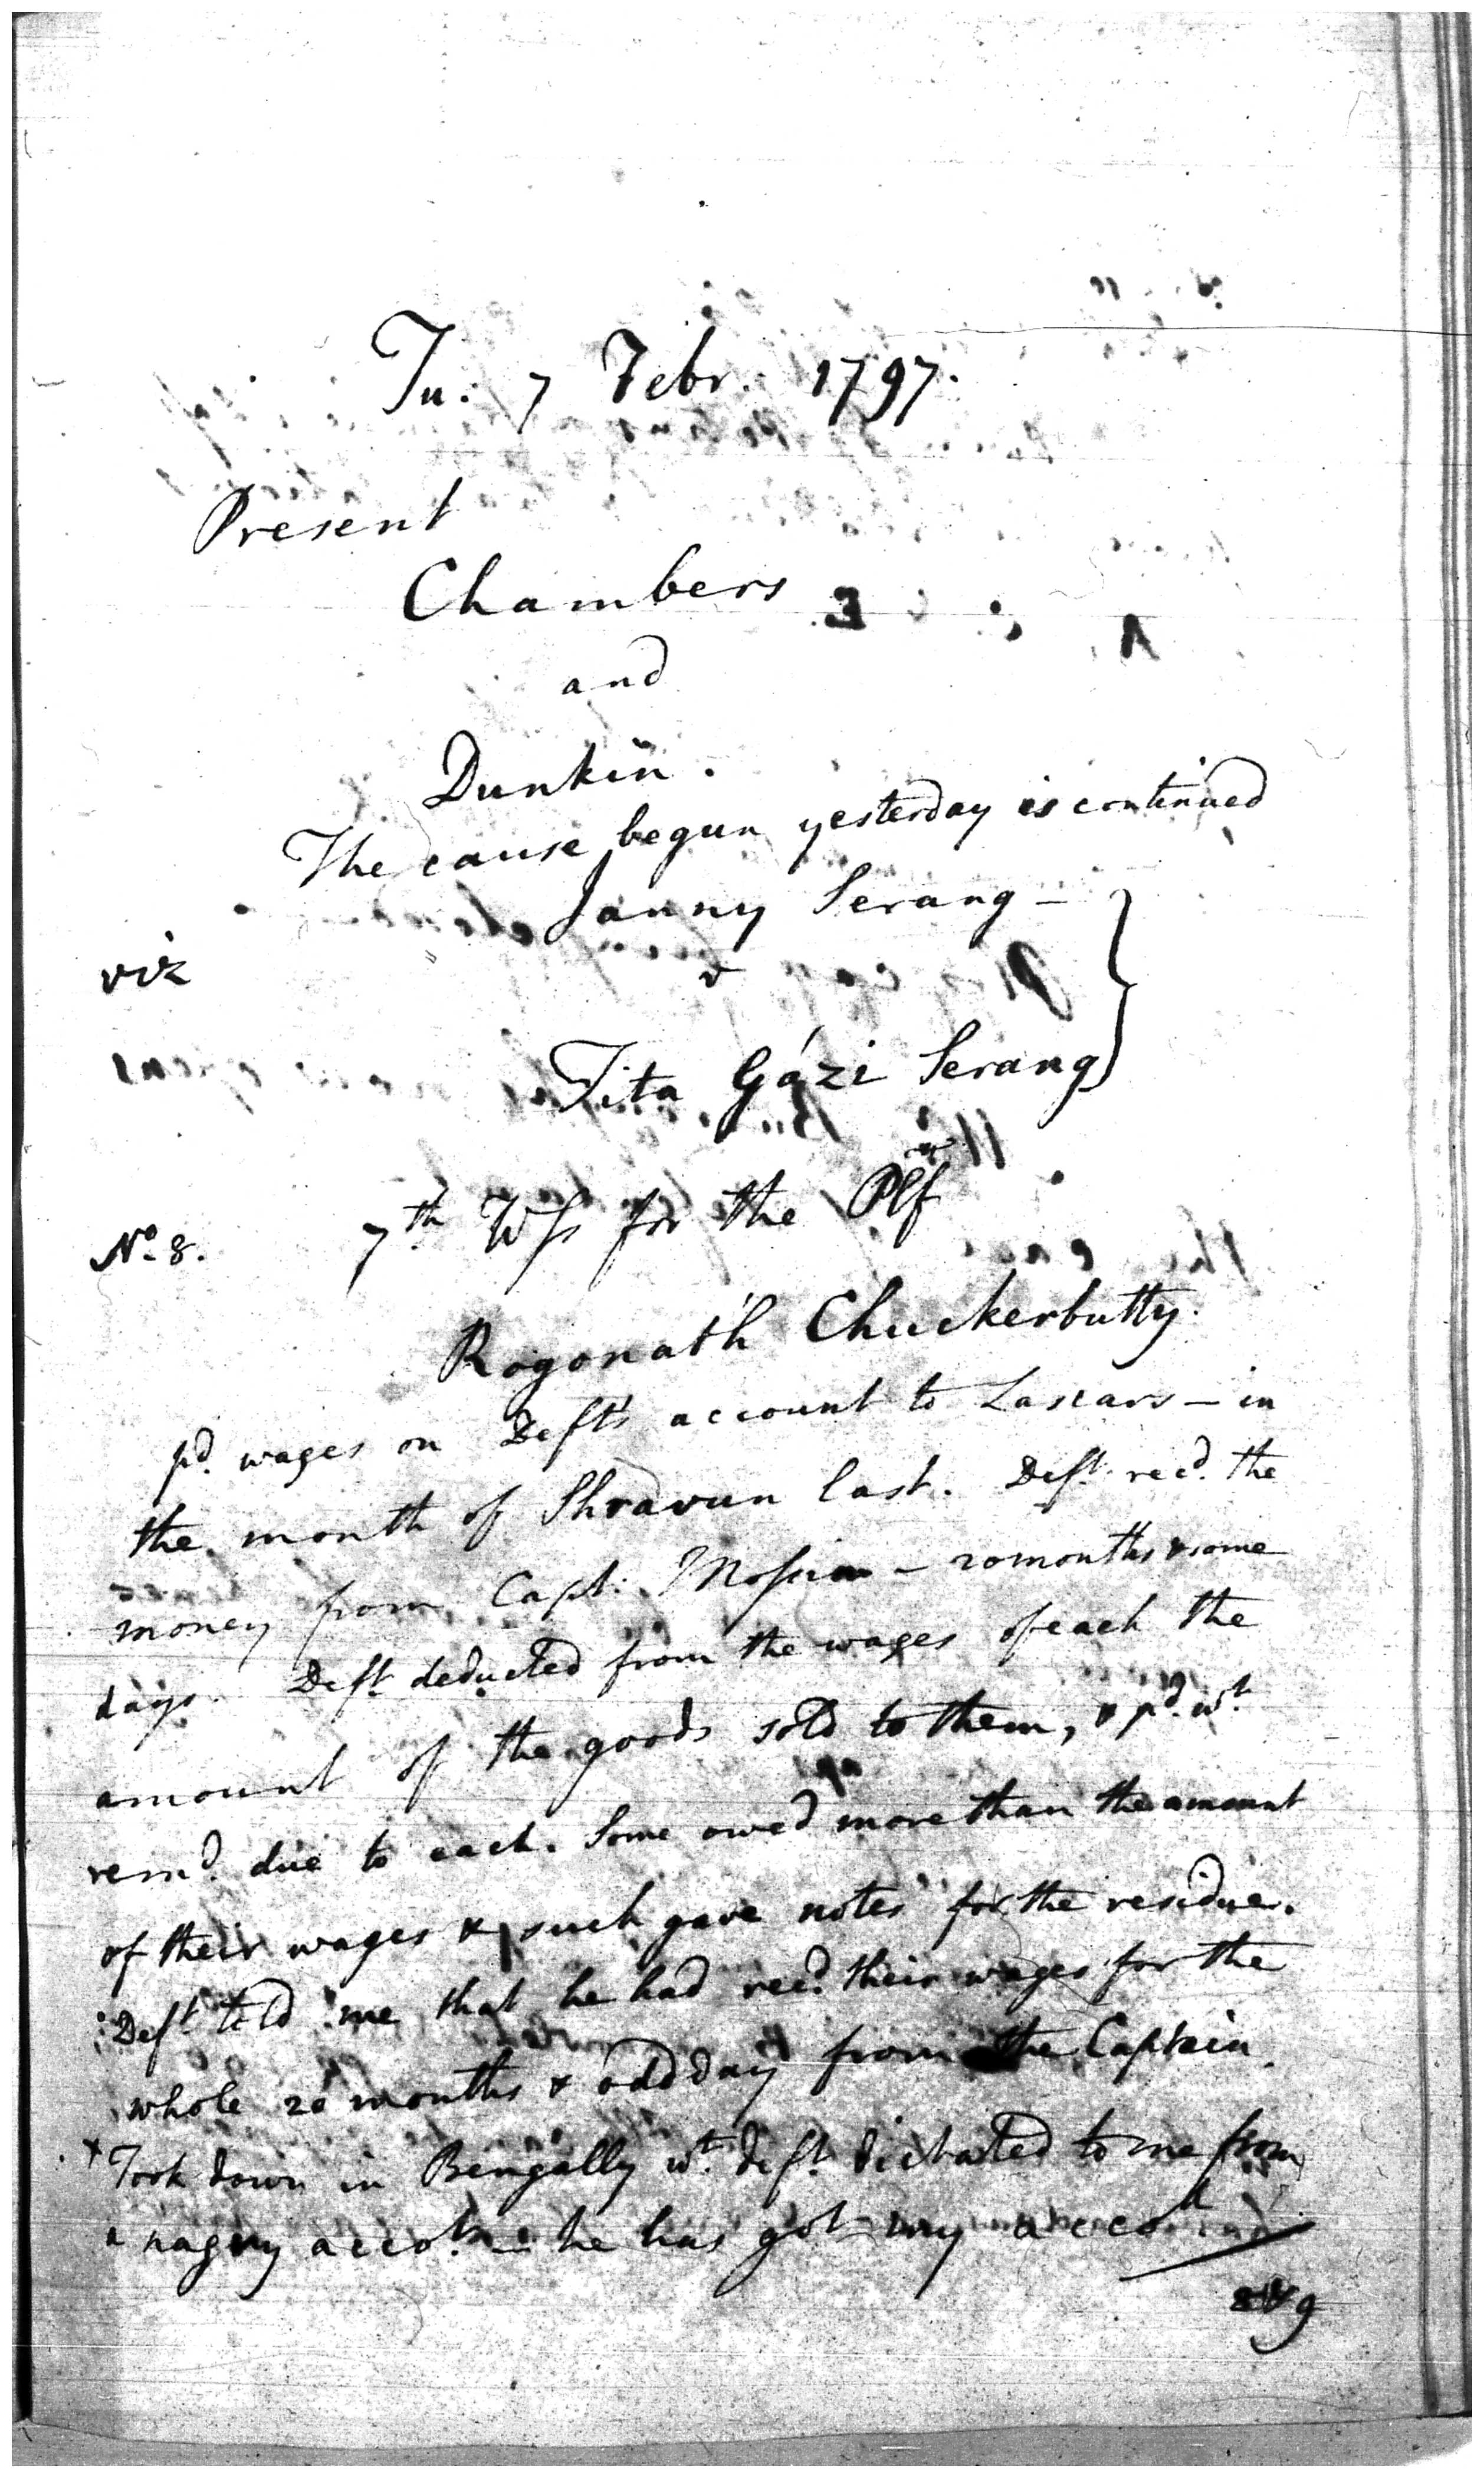 Tu: 7 Febr. 1797.
Present
Chambers
and
Dunkin.
The cause begun yesterday is continued
Janny Serang –
viz v
Tita Gázi Serang
No. 8. 7th Wss for the Plf
Rogonath Chuckerbutty.
pd. wages on Defts account to Lascars – in
the month of Shravun last. Deft. recd. the
money from Capt. – 20 months & some
days. Deft. deducted from the wages of each the
amount of the goods sold to them, & pd. wt
remd. due to each. Some owed more than the amount
of their wages & such gave notes for the residue.
Deft told me that he had recd. their wages for the
whole 20 months & odd day from the Captain.
+ Took down in Bengally wt. deft. dictated to me from
a nagry accot. – he has got my accot